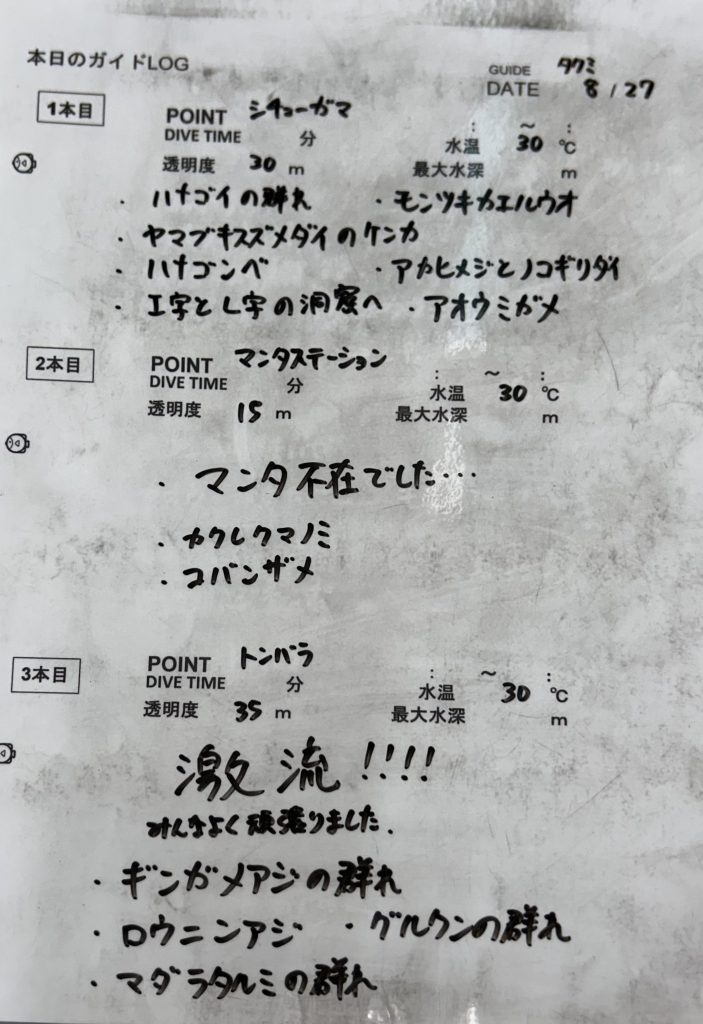 本日のガイドLOG
GUIDE タクミ
DATE 8/27
1本目 POINT シチューガマ
DIVE TIME 分 : ~ :
水温 30 ℃
透明度 30 m 最大水深 m
・ハナゴイの群れ ・モンツキカエルウオ
・ヤマブキスズメダイのケンカ
・ハナゴンベ ・アカヒメジとノコギリダイ
・I字とL字の洞窟へ ・アオウミガメ
2本目 POINT マンタステーション
DIVE TIME 分 : ~ :
水温 30 ℃
透明度 15 m 最大水深 m
・マンタ不在でした…
・カクレクマノミ
・コバンザメ
3本目 POINT トンバラ
DIVE TIME 分 : ~ :
水温 30 ℃
透明度 35 m 最大水深 m
激流!!!!
みんなよく頑張りました.
・ギンガメアジの群れ
・ロウニンアジ ・グルクンの群れ
・マダラタルミの群れ